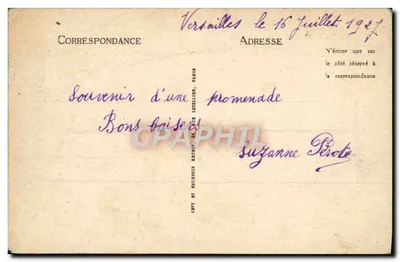 Versailles le 16 Juillet 1927
CORRESPONDANCE
ADRESSE
N'écrire que sur
le côté réservé à
la correspondance
Souvenir d'une promenade
Bons baisers
Suzanne Pérote
CPARAMA.COM